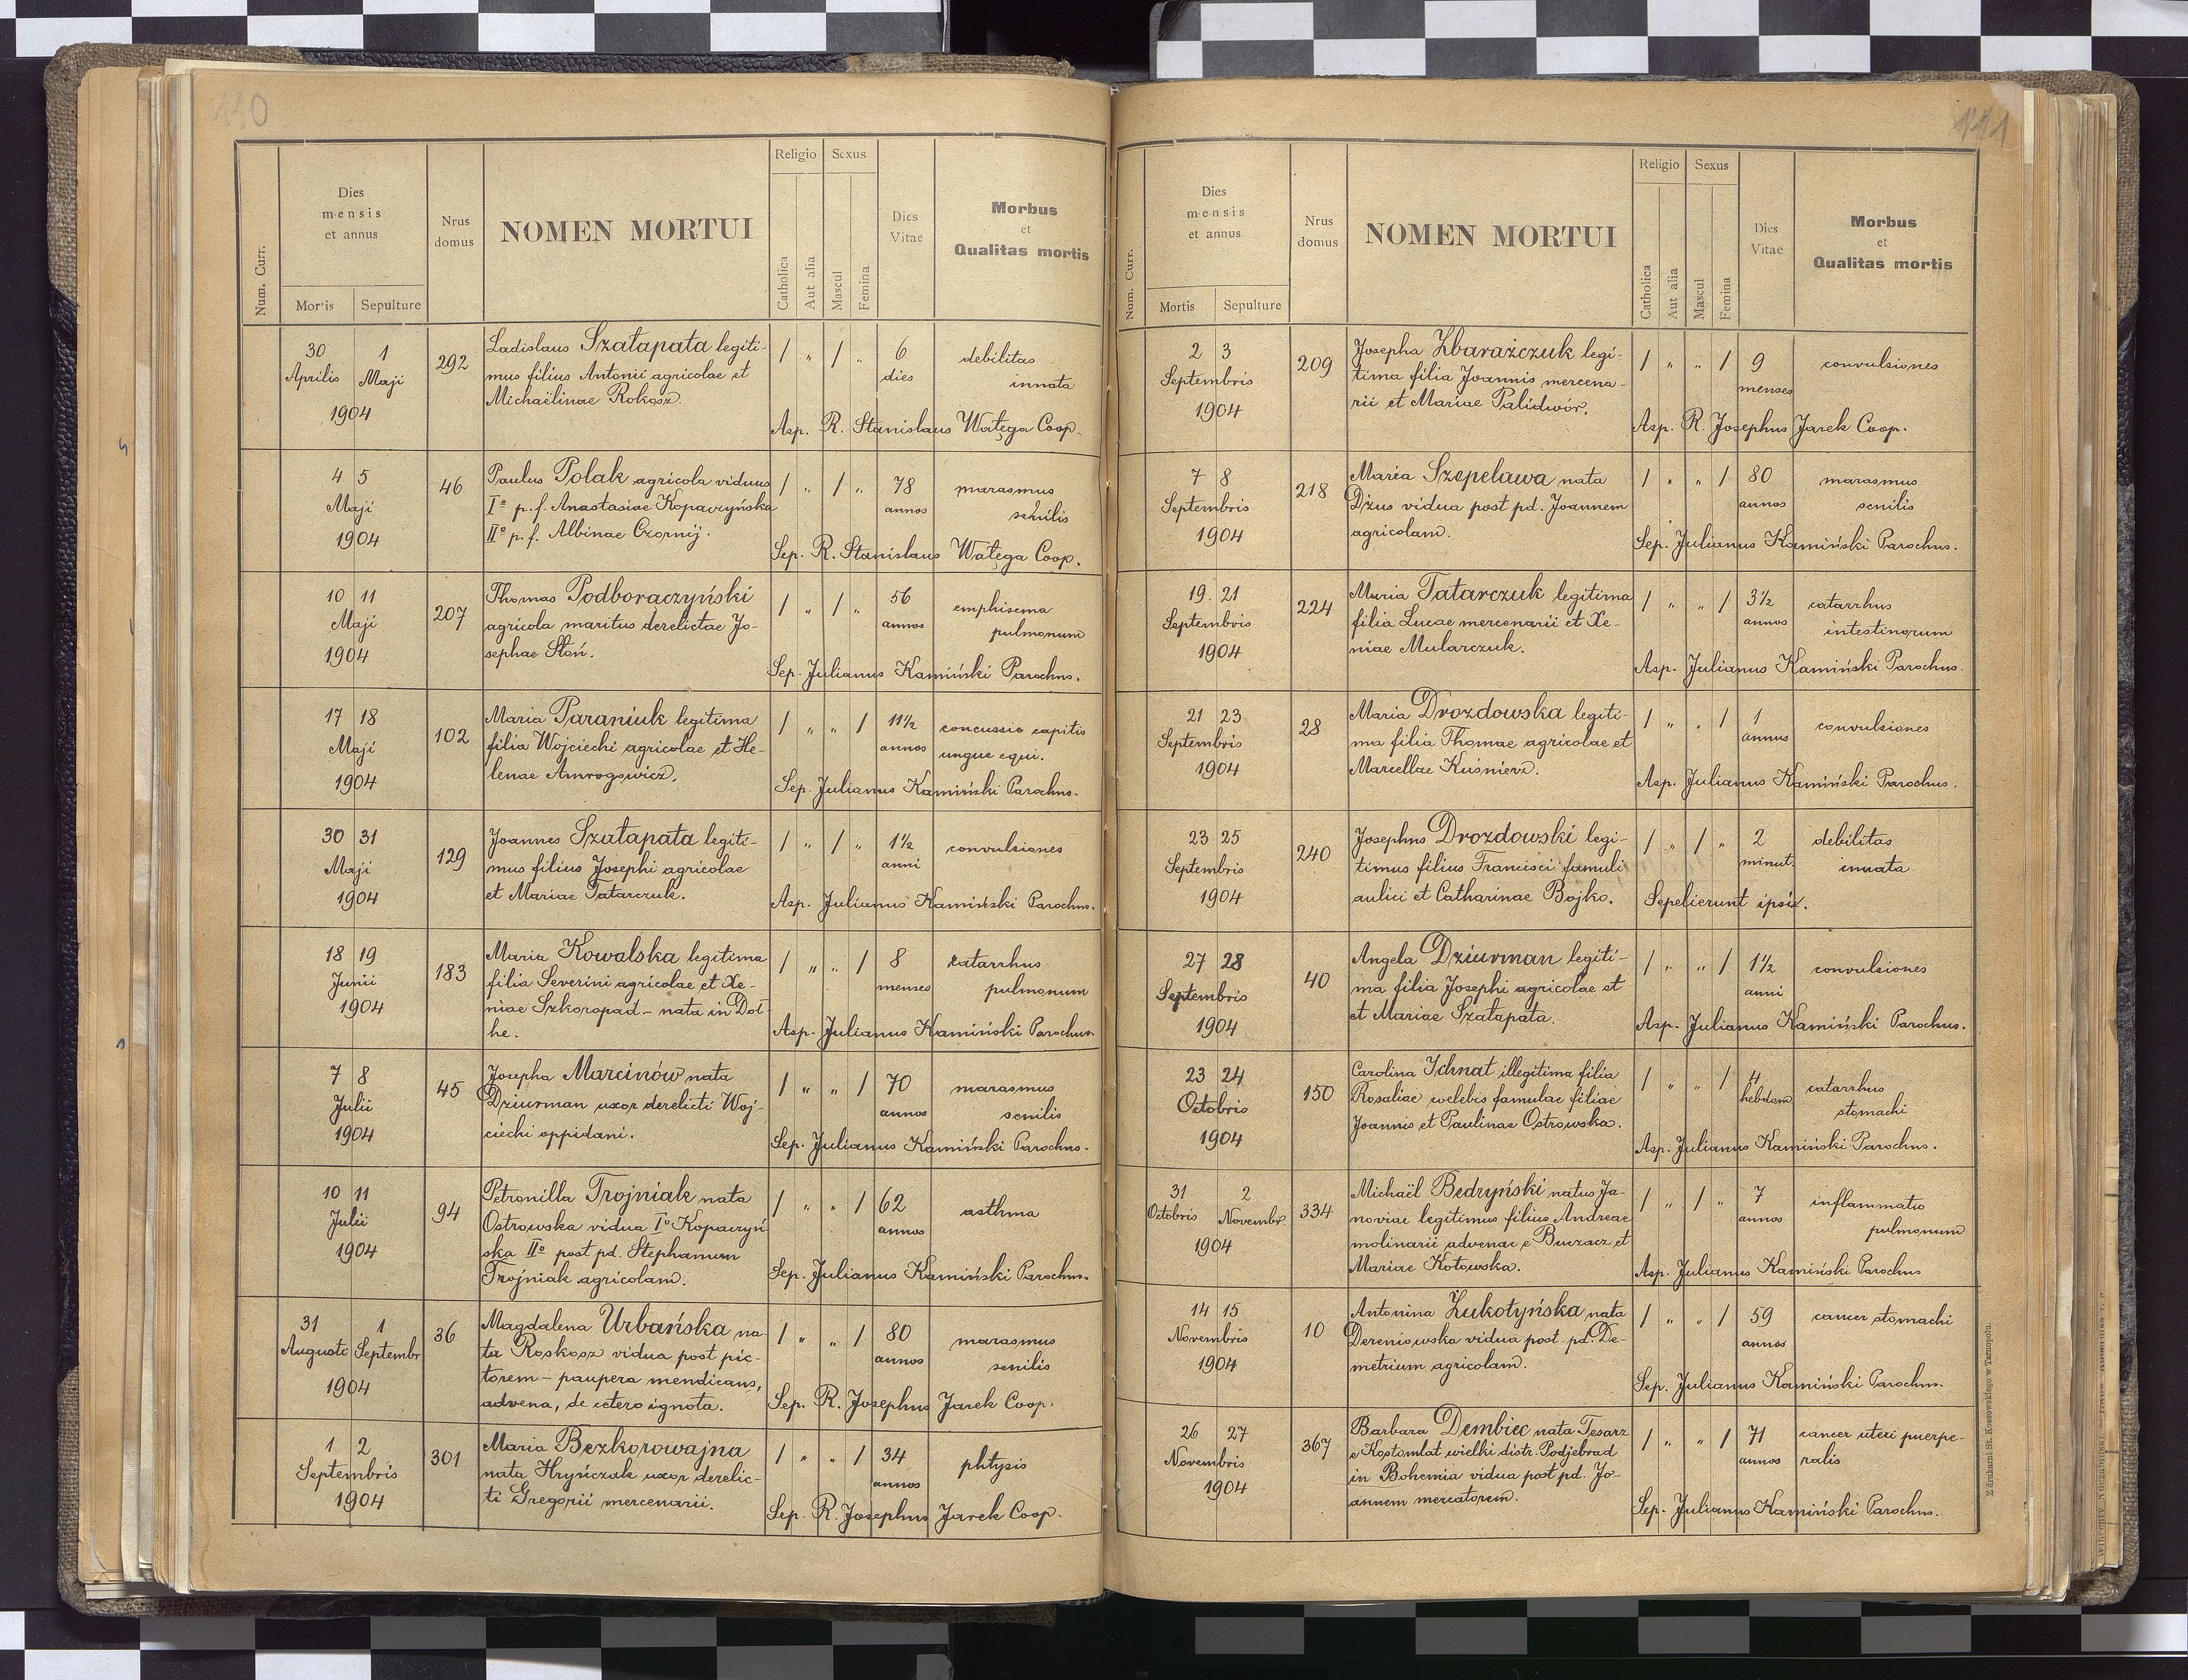 110
Religio Sexus
Dies mensis et annus
Nrus domus
NOMEN MORTUI
Dies Vitae
Morbus et Qualitas mortis
Num. Curr.
Mortis Sepulture
Catholica Aut alia Mascul Femina
30 Aprilis 1 Maji 1904
292
Ladislaus Szałapata legiti-
mus filius Antonii agricolae et
Michaëlinae Rokosz.
/ „ / „
6 dies
debilitas
innata
Asp. R. Stanislaus Wałęga Coop.
4 5
Maji
1904
46
Paulus Polak agricola viduus
Iº p. f. Anastasiae Kopaczyńska
IIº p. f. Albinae Czornij.
/ „ / „
78 annos
marasmus
senilis
Sep. R. Stanislaus Wałęga Coop.
10 11
Maji
1904
207
Thomas Podborączyński
agricola maritus derelictae Jo-
sephae Stoń.
/ „ / „
56 annos
emphisema
pulmonum
Sep. Julianus Kamiński Parochus.
17 18
Maji
1904
102
Maria Paraniuk legitima
filia Wojciechi agricolae et He-
lenae Amrogowicz.
/ „ „ /
11½ annos
concussio capitis
ungue equi.
Sep. Julianus Kamiński Parochus.
30 31
Maji
1904
129
Joannes Szałapata legiti-
mus filius Josephi agricolae
et Mariae Tatarczuk.
/ „ / „
1½ anni
convulsiones
Asp. Julianus Kamiński Parochus.
18 19
Junii
1904
183
Maria Kowalska legitima
filia Severini agricolae et Xe-
niae Szkoropad – nata in Doł-
he.
/ „ „ /
8 menses
catarrhus
pulmonum
Asp. Julianus Kamiński Parochus.
7 8
Julii
1904
45
Josepha Marcinów nata
Dziurman uxor derelicti Woj-
ciechi oppidani.
/ „ „ /
70 annos
marasmus
senilis
Sep. Julianus Kamiński Parochus.
10 11
Julii
1904
94
Petronilla Trojniak nata
Ostrowska vidua Iº Kopaczyń
ska IIº post pd. Stephanum
Trojniak agricolam.
/ „ „ /
62 annos
asthma
Sep. Julianus Kamiński Parochus.
31 Augusti 1 Septembr
1904
36
Magdalena Urbańska na-
ta Roskosz vidua post pic-
torem – paupera mendicans,
advena, de cetero ignota.
/ „ „ /
80 annos
marasmus
senilis
Sep. R. Josephus Jarek Coop.
1 2
Septembris
1904
301
Maria Bezkorowajna
nata Hryńczak uxor derelic-
ti Gregorii mercenarii.
/ „ „ /
34 annos
phtysis
Sep. R. Josephus Jarek Coop.
111
Religio Sexus
Dies mensis et annus
Nrus domus
NOMEN MORTUI
Dies Vitae
Morbus et Qualitas mortis
Num. Curr.
Mortis Sepulture
Catholica Aut alia Mascul Femina
2 3
Septembris
1904
209
Josepha Zbarażczuk legi-
tima filia Joannis mercena-
rii et Mariae Palidwór.
/ „ „ /
9 menses
convulsiones
Asp. R. Josephus Jarek Coop.
7 8
Septembris
1904
218
Maria Szepelawa nata
Dżus vidua post pd. Joannem
agricolam.
/ „ „ /
80 annos
marasmus
senilis
Sep. Julianus Kamiński Parochus.
19. 21
Septembris
1904
224
Maria Tatarczuk legitima
filia Lucae mercenarii et Xe-
niae Mularczuk.
/ „ „ /
3½ annos
catarrhus
intestinorum
Asp. Julianus Kamiński Parochus.
21 23
Septembris
1904
28
Maria Drozdowska legiti-
ma filia Thomae agricolae et
Marcellae Kuśnierz.
/ „ „ /
1 annus
convulsiones
Asp. Julianus Kamiński Parochus.
23 25
Septembris
1904
240
Josephus Drozdowski legi-
timus filius Francisci famuli
aulici et Catharinae Bojko.
/ „ / „
2 minut.
debilitas
innata
Sepelierunt ipsi.
27 28
Septembris
1904
40
Angela Dziurman legiti-
ma filia Josephi agricolae et
et Mariae Szałapata.
/ „ „ /
1½ anni
convulsiones
Asp. Julianus Kamiński Parochus.
23 24
Octobris
1904
150
Carolina Ichnat illegitima filia
Rosaliae coelebis famulae filiae
Joannis et Paulinae Ostrowska.
/ „ „ /
4 hebdom.
catarrhus
stomachi
Asp. Julianus Kamiński Parochus.
31 Octobris 2 Novembr.
1904
334
Michaël Bedryński natus Ja-
noviae legitimus filius Andreae
molinarii advenae e Buczacz et
Mariae Kotowska.
/ „ / „
7 annos
inflammatio
pulmonum
Asp. Julianus Kamiński Parochus
14 15
Novembris
1904
10
Antonina Żukotyńska nata
Dereniowska vidua post pd. De-
metrium agricolam.
/ „ „ /
59 annos
cancer stomachi
Sep. Julianus Kamiński Parochus.
26 27
Novembris
1904
367
Barbara Dembiec nata Tesarz
e Kostomlat wielki distr. Podjebrad
in Bohemia vidua post pd. Jo-
annem mercatorem.
/ „ „ /
71 annos
cancer uteri puerpe-
ralis
Sep. Julianus Kamiński Parochus.
Z drukarni St. Kossowskiego w Tarnopolu.